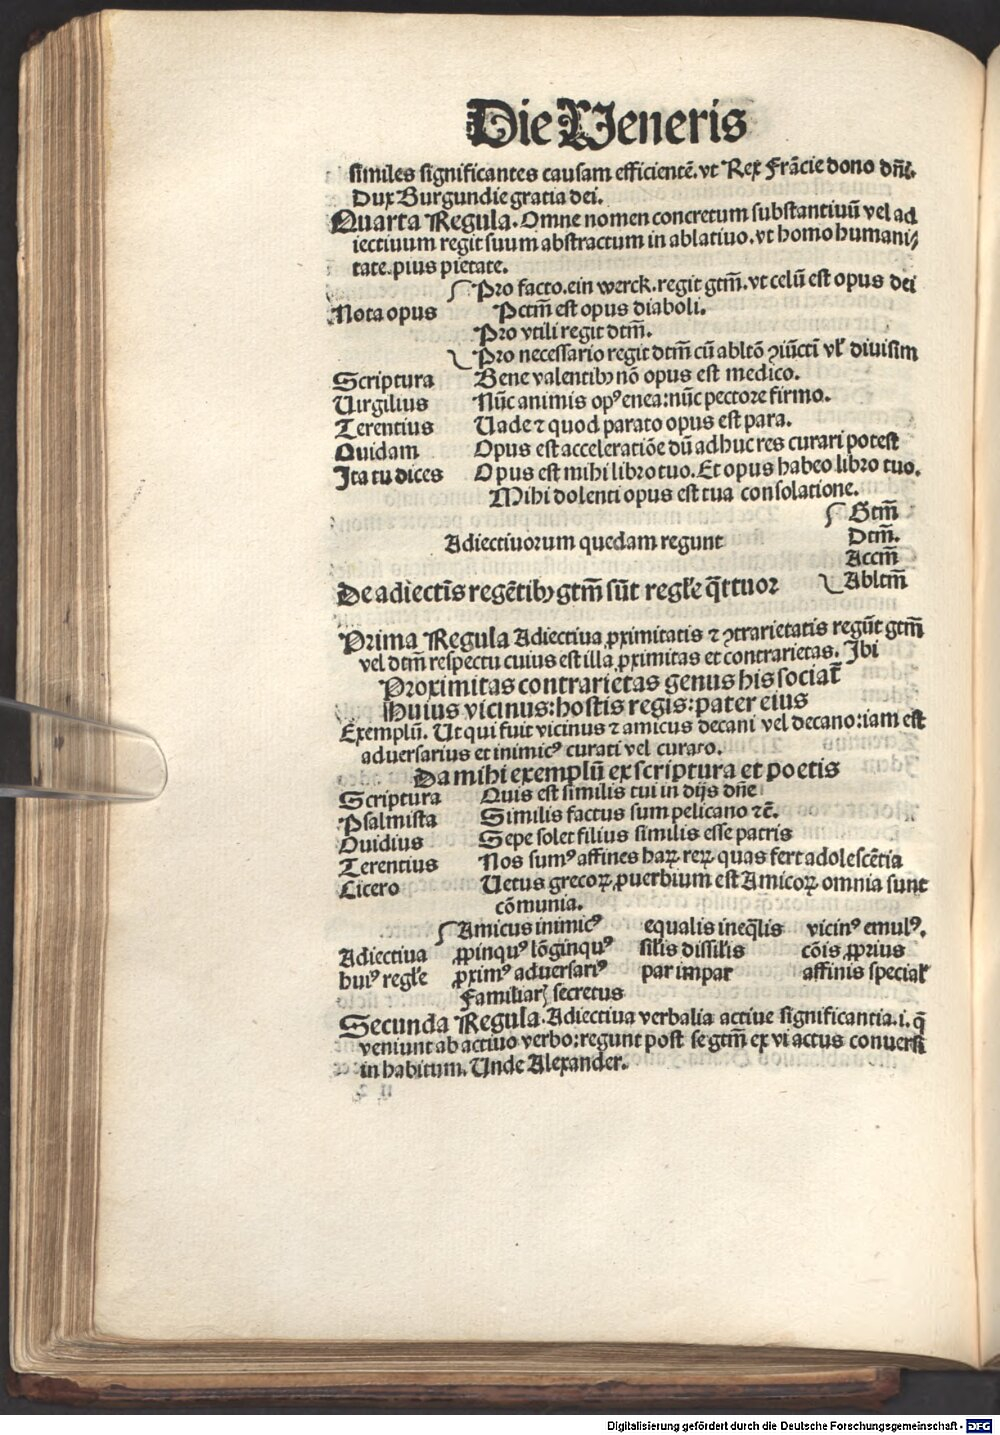 Die Veneris
similes significantes causam efficientē. vt Rex Frācie dono dn̄i.
Dux Burgundie gratia dei.
Quarta Regula. Omne nomen concretum substantiuū vel ad
iectiuum regit suum abstractum in ablatiuo. vt homo humani/
tate. pius pietate.
Pro facto. ein werck. regit gtm̄. vt celū est opus dei
Nota opus Pctm̄ est opus diaboli.
Pro vtili regit dtm̄.
Pro necessario regit dtm̄ cū abltō ꝯiūcti vl' diuisim
Scriptura Bene valentibꝫ nō opus est medico.
Virgilius Nūc animis opꝰ enea: nūc pectore firmo.
Terentius Uade ⁊ quod parato opus est para.
Quidam Opus est acceleratiōe dū adhuc res curari potest
Ita tu dices Opus est mihi libro tuo. Et opus habeo libro tuo.
Mihi dolenti opus est tua consolatione.
Gtm̄
Adiectiuorum quedam regunt Dtm̄.
Accm̄
Abltm̄
De adiectīs regētibꝫ gtm̄ sūt regl'e q̄ttuor
Prima Regula Adiectiua ꝓximitatis ⁊ ꝯtrarietatis regūt gtm̄
vel dtm̄ respectu cuius est illa ꝓximitas et contrarietas. Ibi
Proximitas contrarietas genus his sociat̄
Huius vicinus: hostis regis: pater eius
Exemplū. Ut qui fuit vicinus ⁊ amicus decani vel decano: iam est
aduersarius et inimicꝰ curati vel curato.
Da mihi exemplū ex scriptura et poetis
Scriptura Quis est similis tui in dijs dn̄e
Psalmista Similis factus sum pelicano ⁊c̄.
Ouidius Sepe solet filius similis esse patris
Terentius Nos sumꝰ affines haꝝ reꝝ quas fert adolescētia
Cicero Uetus grecoꝝ ꝓuerbium est Amicoꝝ omnia sunt
cōmunia.
Amicus inimicꝰ equalis ineq̄lis vicinꝰ emulꝰ.
Adiectiua ꝓpinquꝰ lōginquꝰ sil'is dissil'is cōis ꝓprius
huiꝰ regl'e ꝓximꝰ aduersariꝰ par impar affinis special'
Familiarꝭ secretus
Secunda Regula. Adiectiua verbalia actiue significantia. i. q̄
veniunt ab actiuo verbo: regunt post se gtm̄ ex vi actus conuersi
in habitum. Unde Alexander.
Digitalisierung gefördert durch die Deutsche Forschungsgemeinschaft - DFG